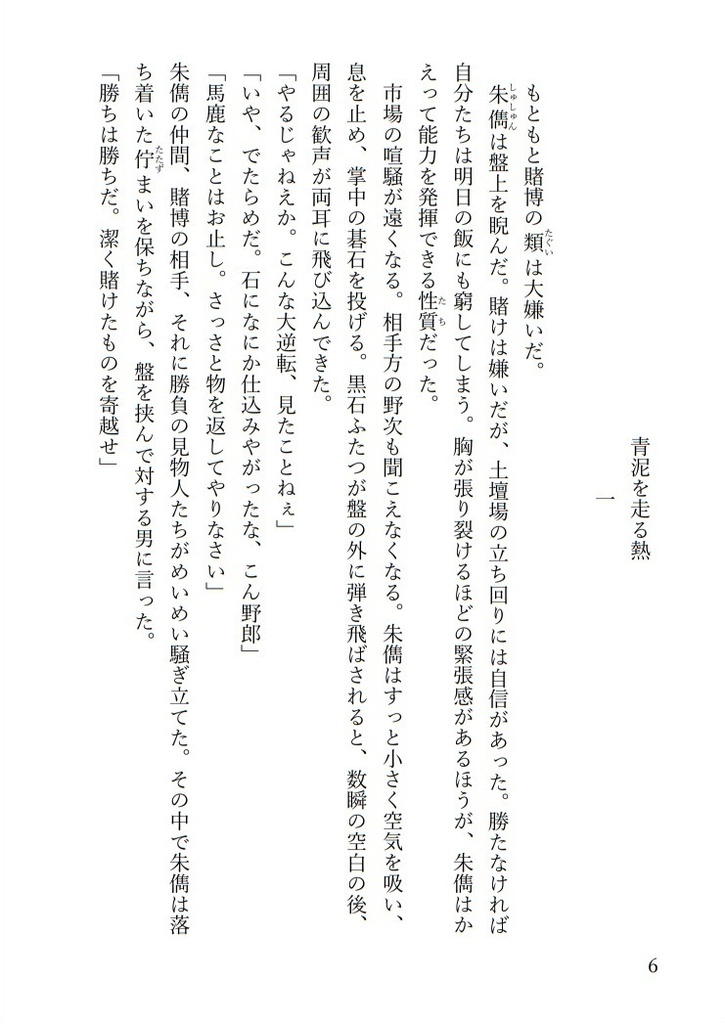 青泥を走る熱
一
もともと賭博の類は大嫌いだ。
朱儁は盤上を睨んだ。賭けは嫌いだが、土壇場の立ち回りには自信があった。勝たなければ
自分たちは明日の飯にも窮してしまう。胸が張り裂けるほどの緊張感があるほうが、朱儁はか
えって能力を発揮できる性質だった。
市場の喧騒が遠くなる。相手方の野次も聞こえなくなる。朱儁はすっと小さく空気を吸い、
息を止め、掌中の碁石を投げる。黒石ふたつが盤の外に弾き飛ばされると、数瞬の空白の後、
周囲の歓声が両耳に飛び込んできた。
「やるじゃねえか。こんな大逆転、見たことねぇ」
「いや、でたらめだ。石になにか仕込みやがったな、こん野郎」
「馬鹿なことはお止し。さっさと物を返してやりなさい」
朱儁の仲間、賭博の相手、それに勝負の見物人たちがめいめい騒ぎ立てた。その中で朱儁は落
ち着いた佇まいを保ちながら、盤を挟んで対する男に言った。
「勝ちは勝ちだ。潔く賭けたものを寄越せ」
6